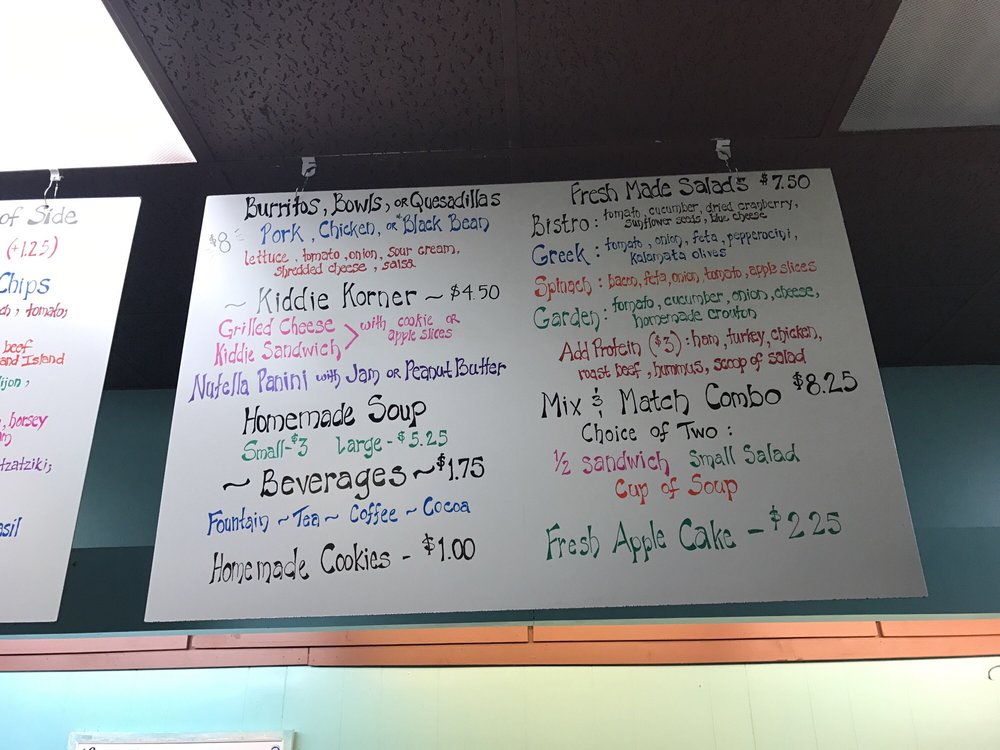 of Side
(+1.25)
Chips
tomato,
beef
Island
horsey
tzatziki,
Burritos, Bowls, or Quesadillas
$8
Pork, Chicken, or Black Bean
lettuce, tomato, onion, sour cream,
shredded cheese, salsa
~ Kiddie Korner ~ $4.50
Grilled Cheese
Kiddie Sandwich
with cookie or
apple slices
Nutella Panini with Jam or Peanut Butter
Homemade Soup
Small-$3 Large-$5.25
~ Beverages ~ $1.75
Fountain ~ Tea ~ Coffee ~ Cocoa
Homemade Cookies - $1.00
Fresh Made Salads $7.50
Bistro: tomato, cucumber, dried cranberry,
sunflower seeds, blue cheese
Greek: tomato, onion, feta, pepperocini,
kalamata olives
Spinach: bacon, feta, onion, tomato, apple slices
Garden: tomato, cucumber, onion, cheese,
homemade crouton
Add Protein ($3): ham, turkey, chicken,
roast beef, hummus, scoop of salad
Mix & Match Combo $8.25
Choice of Two:
1/2 sandwich Small Salad
Cup of Soup
Fresh Apple Cake - $2.25